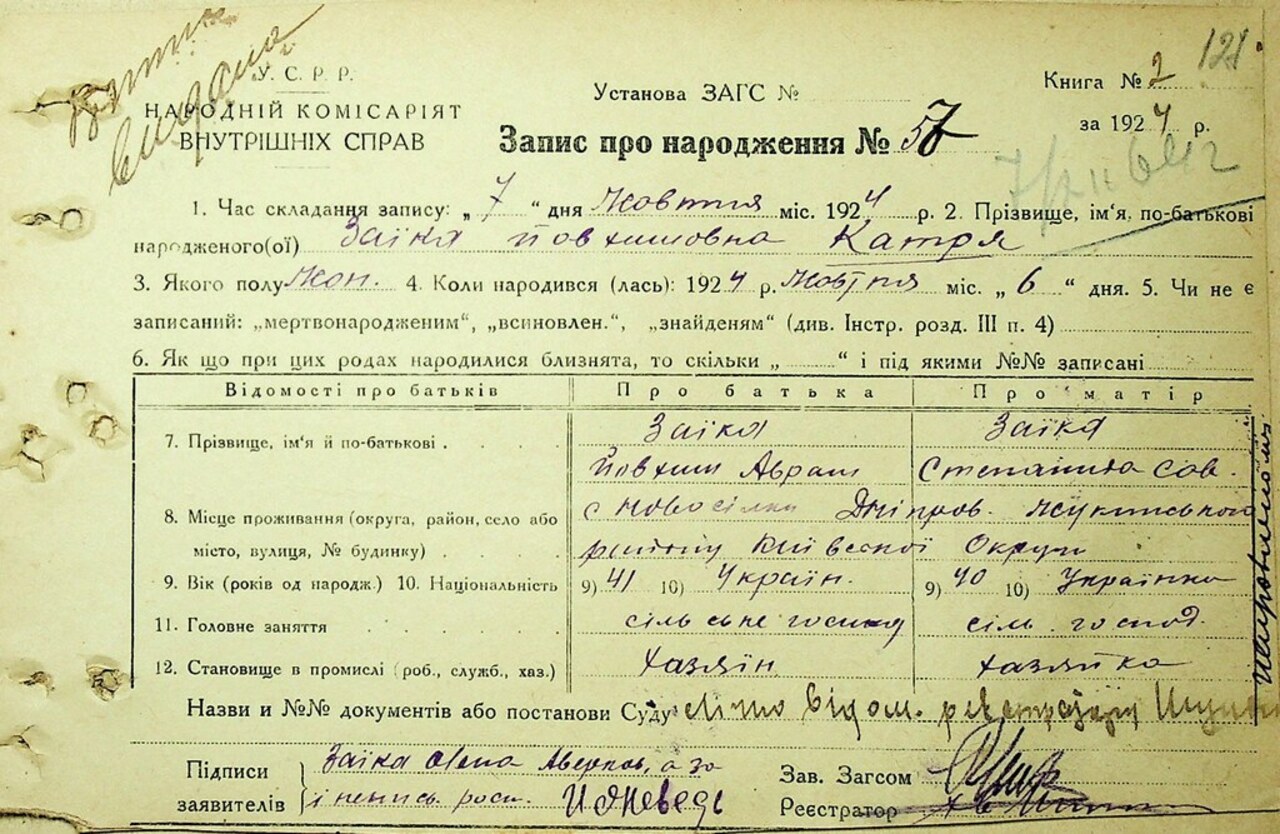 видано
121
У. С. Р. Р.
НАРОДНІЙ КОМІСАРІЯТ
ВНУТРІШНІХ СПРАВ
Установа ЗАГС №
Книга № 2
за 1924 р.
Запис про народження № 57
1. Час складання запису: „ 7 “ дня Жовтня міс. 1924 р. 2. Прізвище, ім'я, по-батькові
народженого(ої) Заїка Йовхимовна Катря
3. Якого полу Жон. 4. Коли народився (лась): 1924 р. Жовтня міс. „ 6 “ дня. 5. Чи не є
записаний: „мертвонародженим“, „всиновлен.“, „знайденям“ (див. Інстр. розд. III п. 4)
6. Як що при цих родах народилися близнята, то скільки „ “ і під якими №№ записані
Відомості про батьків Про батька Про матір
7. Прізвище, ім'я й по-батькові . Заїка Заїка
Йовхим Аврам Степанида Сав.
8. Місце проживання (округа, район, село або с Новосілки Дніпров.
місто, вулиця, № будинку) району Київської Округи
9. Вік (років од народж.) 10. Національність 9) 41 10) Україн. 9) 40 10) Українка
11. Головне заняття сільське господ сіл. господ.
12. Становище в промислі (роб., служб., хаз.) хазяїн хазяйка
Назви и №№ документів або постанови Суду
Підписи Заїка Олена Аверков, а за
заявителів
Зав. Загсом
Реєстратор